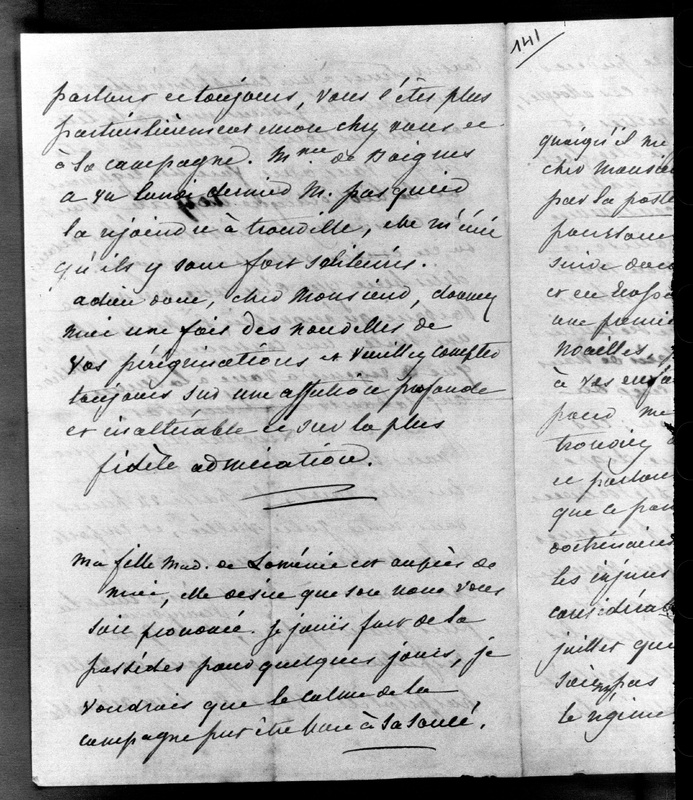 141
partout et toujours, vous l'êtes plus
particulièrement encore chez vous et
à la campagne. Mme de Boignes
a vu lundi dernier M. pasquier
la rejoindre à trouville, elle m'écrit
qu'ils y sont fort solitaires.
adieu donc, cher Monsieur, donnez
moi une fois des nouvelles de
vos pérégrinations et veuillez compter
toujours sur une affection profonde
et inaltérable et sur la plus
fidèle admiration.
Ma fille Mad. de Loménie est auprès de
moi, elle désire que son nom vous
soit prononcé. je jouis fort de la
posséder pour quelques jours, je
voudrais que le calme de la
campagne put être bon à sa santé.
quoiqu'il me
cher Monsie
par la poste
poursuivre
suive dans
et en Ecosse
une premiè
Noailles
à ses enfa
pour me
et partou
que ce par
doctrinaire
les injures
considérab
juillet que
soit pas
le régime